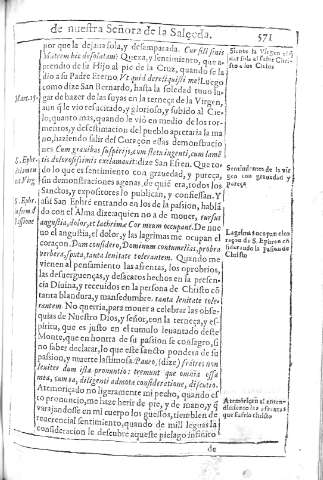 de nuestra Señora de la Salceda. 571
por que la dejara sola, y desamparada. Cur sili sinit
Matrem hic desolatam? Quexa, y sentimiento, que
prendio de la Hijo al pie de la Cruz, quando se
dio a su Padre Eterno Vt quid dereliquisti me? Luego
como dize San Bernardo, hasta la soledad tuuo lu-
gar de hazer de las suyas en la terneça de la Virgen,
aun q le vio resucitado, y glorioso, y subido al Cie-
lo, quanto mas, quando le vió en medio de los tor-
mentos, y desestimacion del pueblo apretaria la ma-
no, haziendo salir del Coraçon
nes Cum grauibus suspirijs, cum fletu ingenti, cum
tis dolorosissimis exclamauit: dize San Efren. Que to-
do lo que es sentimiento con grauedad, y pureça,
sin demonstraciones agenas, de quié era, todos los
Sanctos, y expositores lo publican, y confiessan. Y
assi San Ephré entrando en los de la passion, habla
da con el Alma dize a quien no a de mouer, rursus
angustia, dolor, et lachrimæ Cor meum occupant. De nue
uo el angustia, el dolor, y las lagrimas me ocupan el
coraçon. Dum considero, Dominum contumelias, probra
verbera, sputa, tanta lenitate tolerantem. Quando me
vienen al pensamiento las afrentas, los oprobrios,
las desuerguenças, y desacatos hechos en la presen-
cia Diuina, y receuidos en la persona de Christo cõ
tanta blandura, y mansedumbre. tanta lenitate tole-
rantem. No querria, para mouer a celebrar las obse-
quias de Nuestro Dios, y señor, con la terneça, y es-
piritu, que es justo en el tumulo leuantado deste
Monte, que en honrra de su passion se consagro, si
no saber declarar, lo que este sancto pondera de su
passion, y muerte lastimosa. Paueo, (dize) fratres non
leuiter dum ista pronuntio: tremunt que omnia ossa
mea, cum ea, diligenti admota consideratione, discutio.
Atemoriçado no ligeramente mi pecho, quando es
to pronuncio, me haze herir de pie, y de mano, y q
varajandose en mi cuerpo los guessos, tiemblen de
reuerencial sentimiento, quando de mil leguas la
consideracion le descubre aqueste pielago infinito
de
Matt. 25.
S. Ephr.
S. Ephr.
Siente la Virgen
sto a los Cielos
Sentimientos de la vir
gen con grauedad y
pureça
Lagrimas ocupan el co
raçon de S. Ephren cõ
siderando la passion de
Christo
Atemoriçan el enten-
dimiento las afrentas
que sufrio Christo